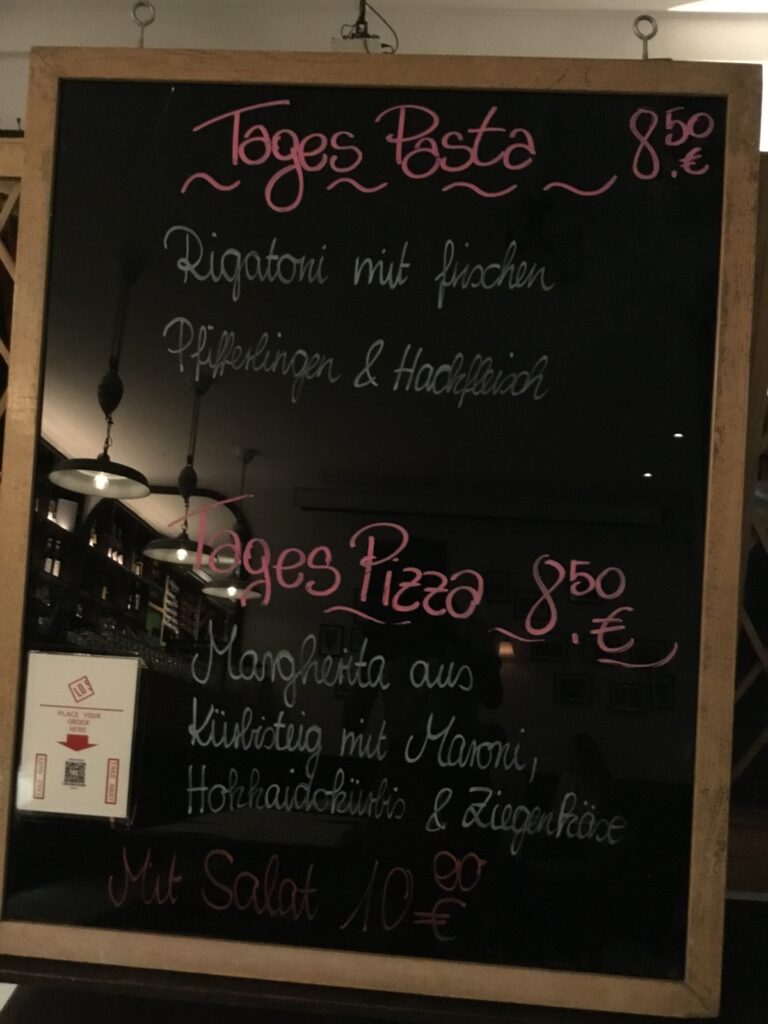 Tages Pasta 8.50 €
Rigatoni mit frischen
Pfifferlingen & Hackfleisch
Tages Pizza 8.50 €
Margherita aus
Kürbisteig mit Maroni,
Hokkaidokürbis & Ziegenkäse
Mit Salat 10 90 €
PLACE YOUR
ORDER
HERE